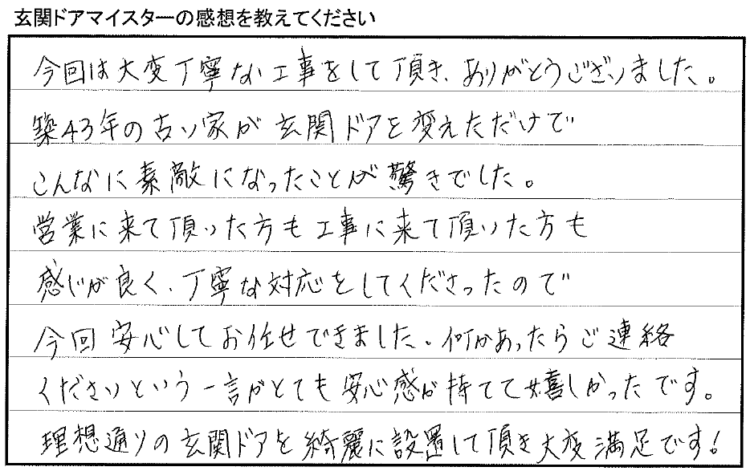 玄関ドアマイスターの感想を教えてください
今回は大変丁寧な工事をして頂き、ありがとうございました。
築43年の古い家が玄関ドアを変えただけで
こんなに素敵になったことが驚きでした。
営業に来て頂いた方も工事に来て頂いた方も
感じが良く、丁寧な対応をしてくださったので
今回安心してお任せできました。何かあったらご連絡
くださいという一言がとても安心感が持てて嬉しかったです。
理想通りの玄関ドアを綺麗に設置して頂き大変満足です！